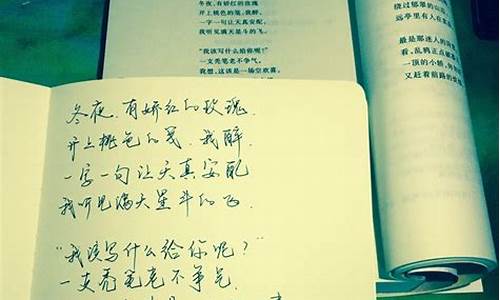 冬夜，有娇红的玫瑰
开上桃色的笺，我醉，
一字一句让天真安配，
我听见满天星斗的飞。
“我该写什么给你呢？”
一支秃笔老不争气，
我想，这该是一场空欢喜，
绕过郁翠的山
远亭里有人在
最是那迷人的
看，乱鸦正点破
一顶的小轿，
又赶着前路的
冬夜，有娇红的玫瑰，
开上桃色的笺，我醉，
一字一句让天真安配
我听见满天星斗的飞
“我该写什么给你呢？”
一支秃笔老不争气